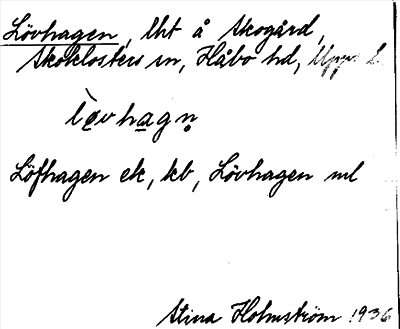 Lövhagen, lht å Skogård,
Skoklosters sn, Håbo hd, Upps. l.
lø̀vhagn̥
Löfhagen ek, kb, Lövhagen ml
Stina Holmström 1936